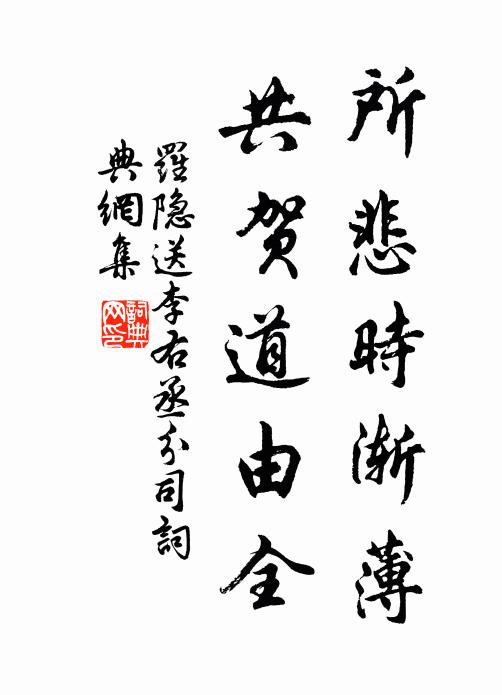 所悲時渐薄
共贺道由全
羅隐送李右丞分司詞
典網集
詞典
网印